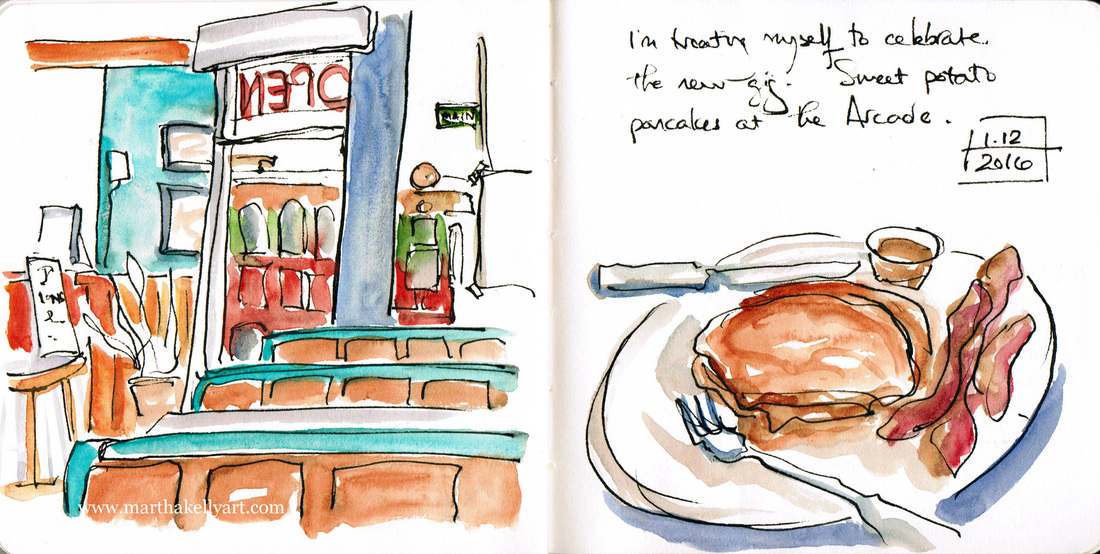 OPEN
MAIN
www.marthakellyart.com
I'm treating myself to celebrate.
the new gig. Sweet potato
pancakes at the Arcade.
1.12
2016